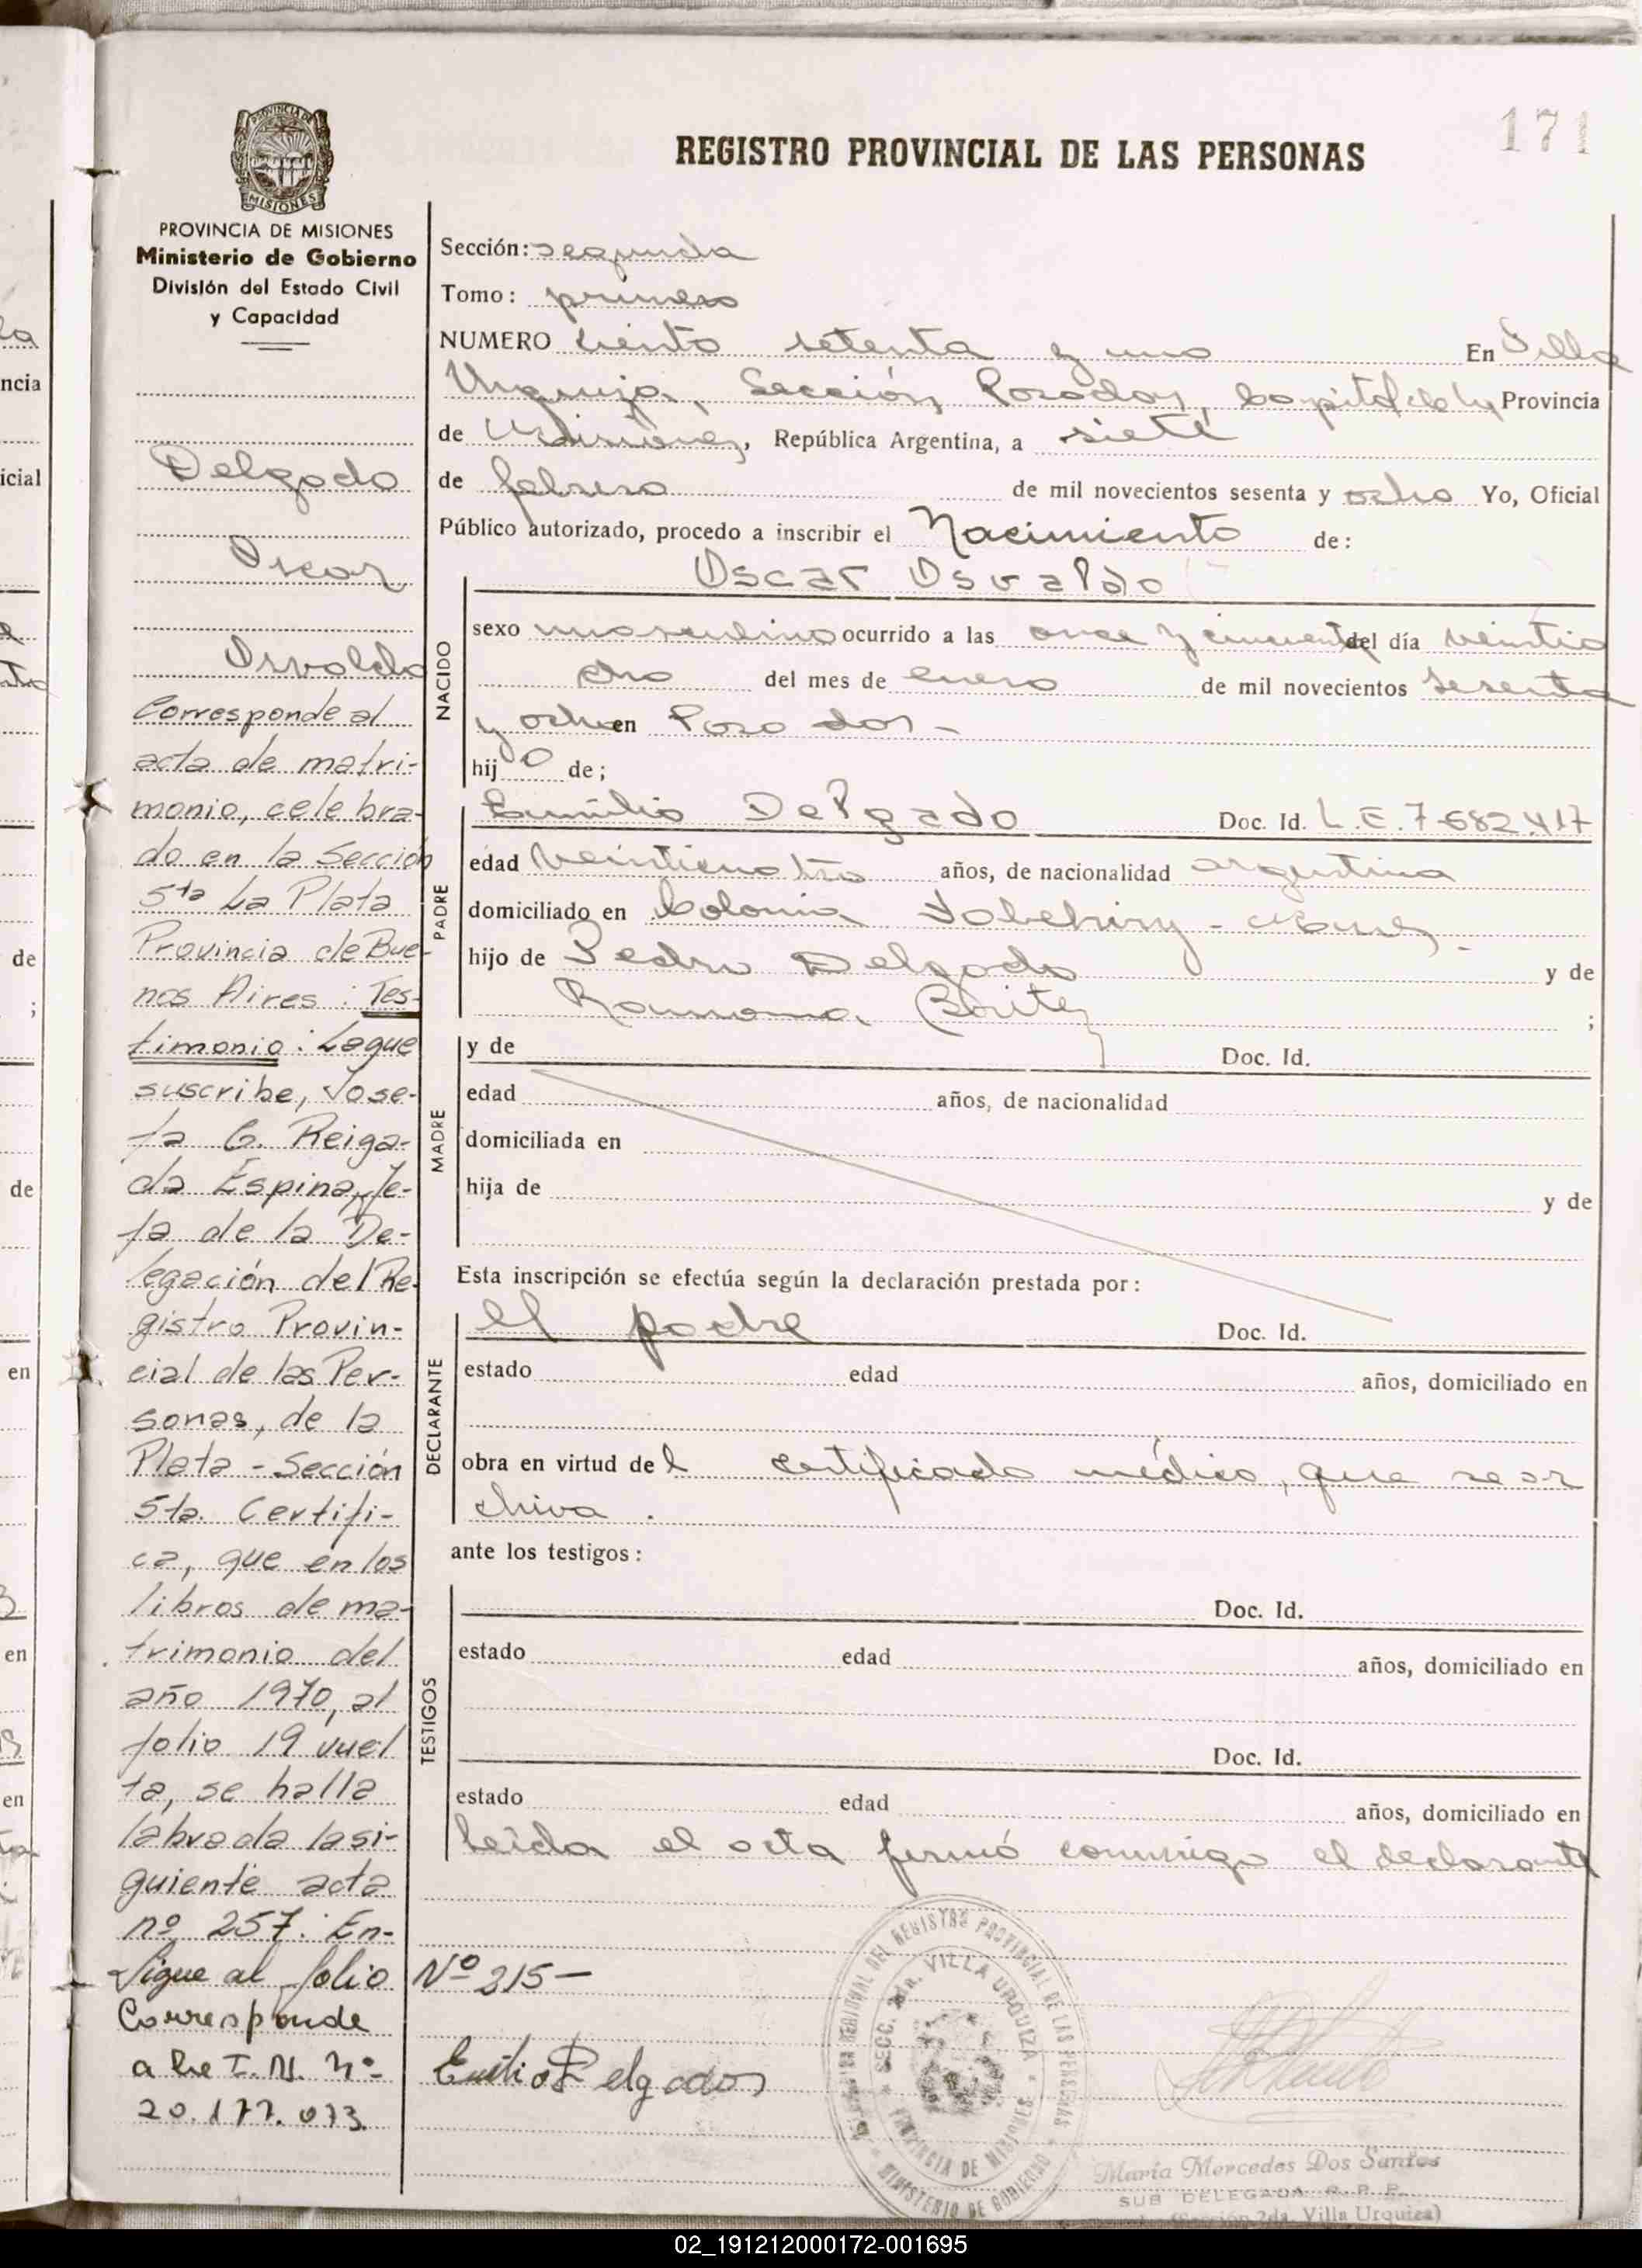 171
PROVINCIA DE
MISIONES
REGISTRO PROVINCIAL DE LAS PERSONAS
PROVINCIA DE MISIONES
Ministerio de Gobierno
División del Estado Civil
y Capacidad
Delgado
Oscar
Osvaldo
Corresponde al
acta de matri-
monio, celebra-
do en la Sección
5ta La Plata
Provincia de Bue-
nos Aires: Tes-
timonio: La que
suscribe, Jose-
fa G. Reiga-
da Espina, Je-
fa de la De-
legación del Re-
gistro Provin-
cial de las Per-
sonas, de la
Plata - Sección
5ta. Certifi-
ca, que en los
libros de ma-
trimonio del
año 1970, al
folio 19 vuel
ta, se halla
labrada la si-
guiente acta
nº 257: En-
Sigue al folio Nº 215-
Corresponde
a la I. N. nº
20.177.073
Sección: segunda
Tomo: primero
NUMERO ciento setenta y uno En Villa
Urquiza, Sección Posadas, Capital de la Provincia
de Misiones, República Argentina, a siete
de febrero de mil novecientos sesenta y ocho Yo, Oficial
Público autorizado, procedo a inscribir el Nacimiento de:
Oscar Osvaldo
NACIDO
sexo masculino ocurrido a las once y cincuenta del día veintio
cho del mes de enero de mil novecientos sesenta
y ocho en Posadas -
hijo de;
PADRE
Emilio Delgado Doc. Id. L.E. 7.682.417
edad veinticuatro años, de nacionalidad argentina
domiciliado en Colonia Yabebiry -
hijo de Pedro Delgado y de
Ramona Benitez ;
MADRE
y de Doc. Id.
edad años, de nacionalidad
domiciliada en
hija de y de
Esta inscripción se efectúa según la declaración prestada por:
DECLARANTE
el padre Doc. Id.
estado edad años, domiciliado en
obra en virtud del certificado médico, que se ar
chiva.
ante los testigos:
TESTIGOS
Doc. Id.
estado edad años, domiciliado en
Doc. Id.
estado edad años, domiciliado en
Leída el acta firmó conmigo el declarante
Emilio Delgado
DEL REGISTRO PROVINCIAL DE LAS PERSONAS
SECC. 2da. VILLA URQUIZA
PROVINCIA DE MISIONES
MINISTERIO DE GOBIERNO
María Mercedes Dos Santos
SUB DELEGADA R. P. P.
(Sección 2da. Villa Urquiza)
ncia
icial
de
;
de
en
en
en
02_191212000172-001695